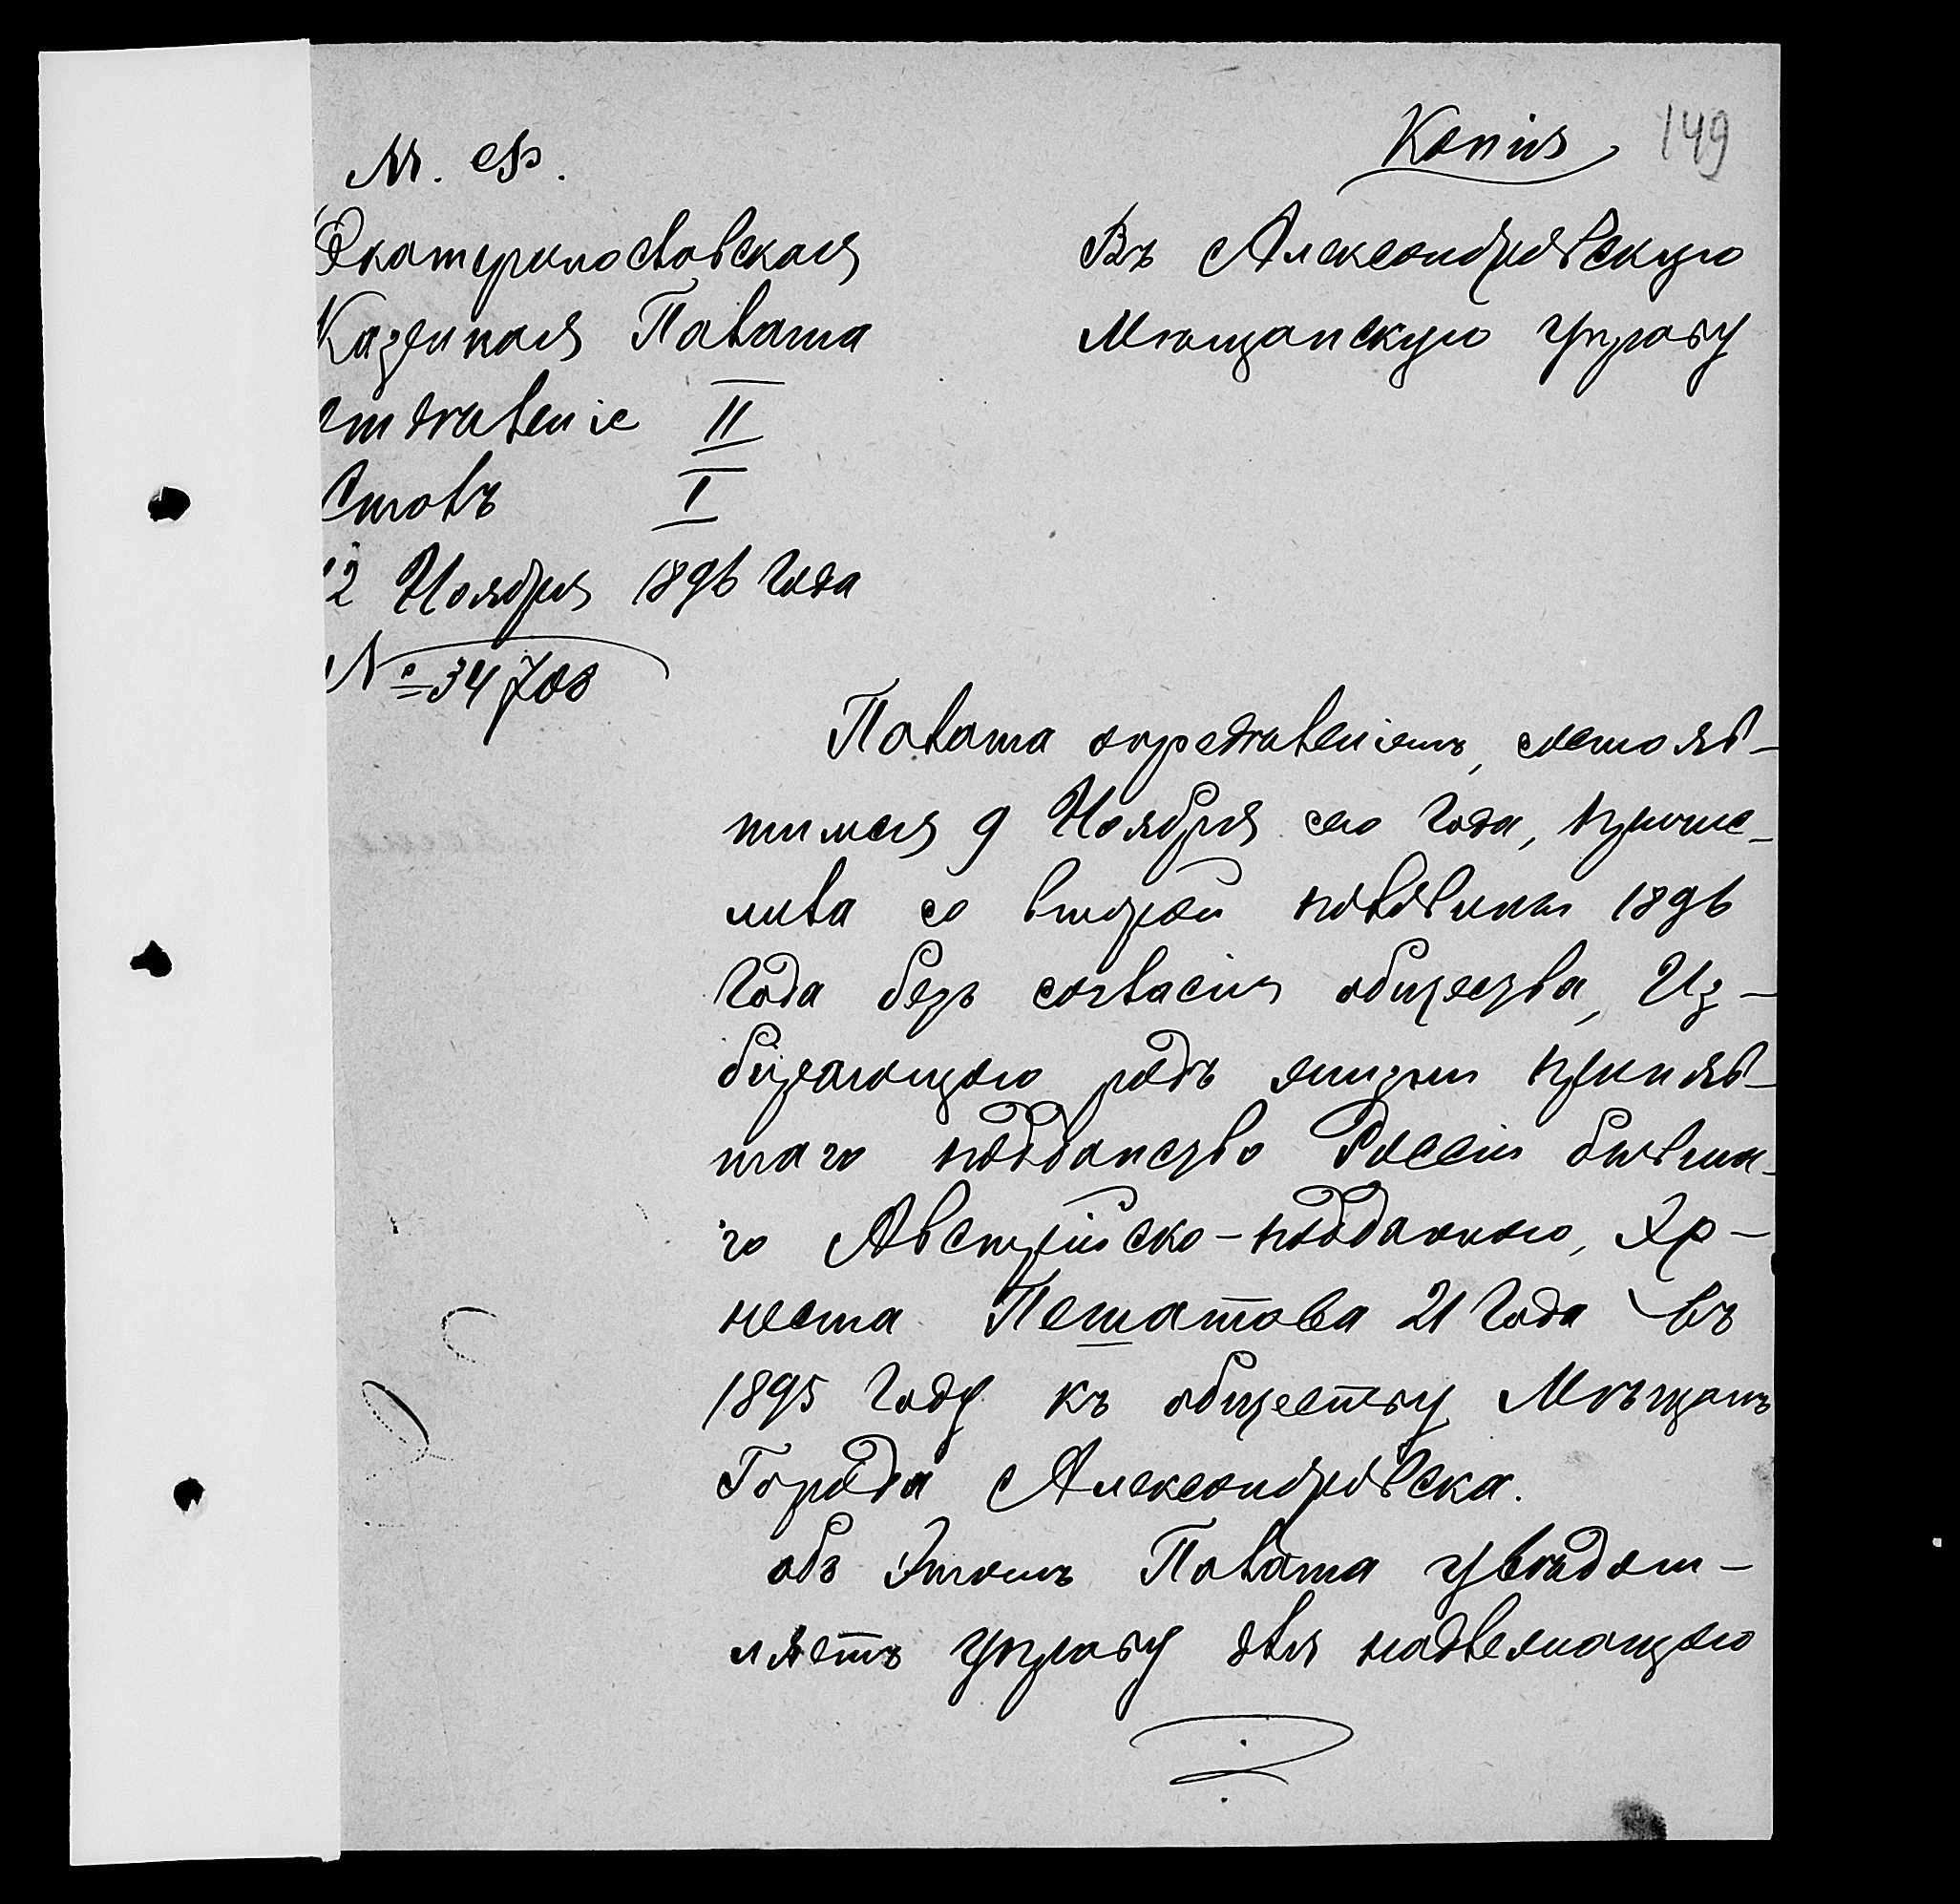 Копія 149
М. Ф.
Екатеринославская
Казенная Палата
отдѣленіе II
Столъ I
12 Ноября 1896 года
№ 34708
Въ Александровскую
Мѣщанскую Управу
Палата опредѣленіемъ, состояв-
шимся 9 Ноября сего года, причис-
лила со второй половины 1896
года безъ согласія общества, Из-
бирающаго родъ жизни приняв-
шаго подданство Россіи бывша-
го Австрійско-подданнаго, Эр-
неста Пешатова 21 года въ
1895 году къ обществу Мѣщанъ
Города Александровска.
объ Этомъ Палата увѣдом-
ляетъ Управу для надлежащаго